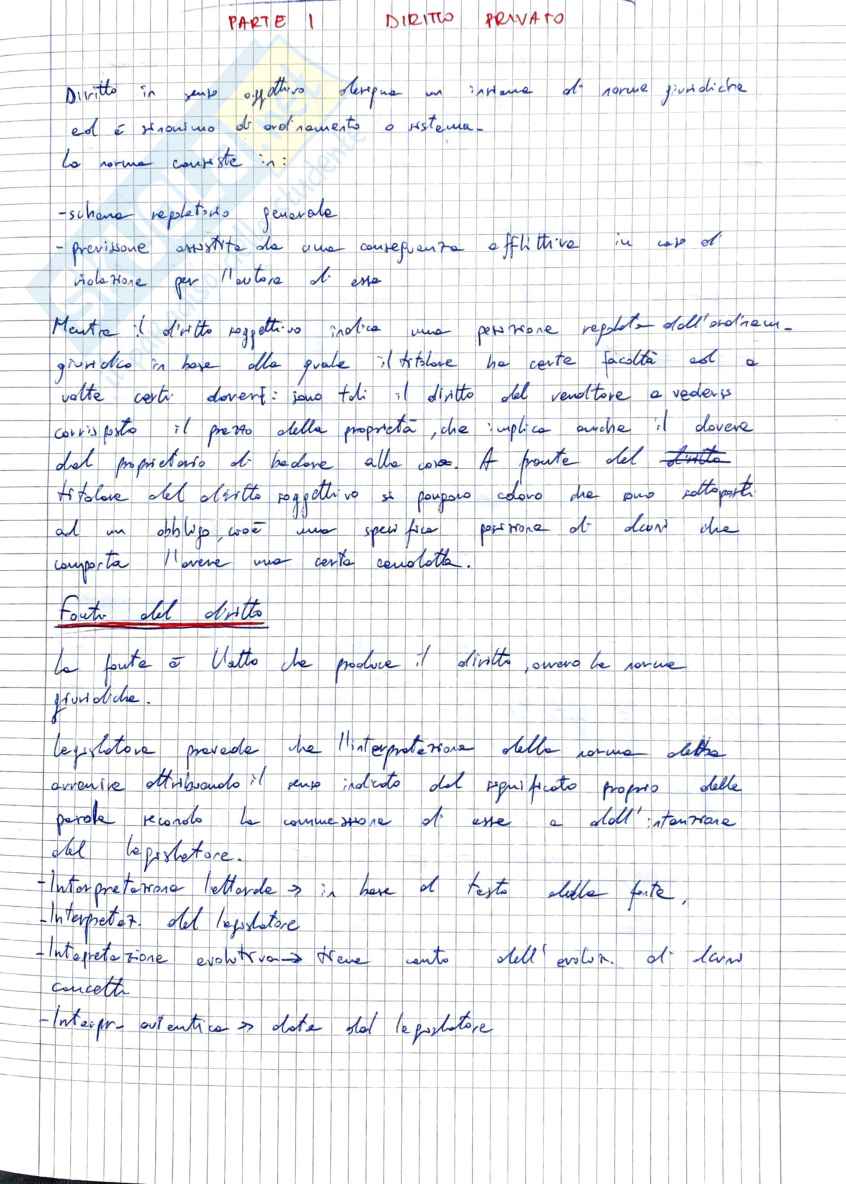 PARTE 1 DIRITTO PRIVATO
Diritto in senso oggettivo designa un insieme di norme giuridiche
ed è sinonimo di ordinamento o sistema.
La norma consiste in:
-schema regolatorio generale
- previsione assistita da una conseguenza afflittiva in caso di
violazione per l'autore di essa
Mentre il diritto soggettivo indica una posizione regolata dall'ordinam.
giuridico in base alla quale il titolare ha certe facoltà ed a
volte certi doveri: sono tali il diritto del venditore a vedersi
corrisposto il prezzo della proprietà, che implica anche il dovere
del proprietario di badare alla cosa. A fronte del diritto
titolare del diritto soggettivo si pongono coloro che sono sottoposti
ad un obbligo, cioè una specifica posizione di che
comporta l'avere una certa condotta.
Fonti del diritto
La fonte è l'atto che produce il diritto, ovvero le norme
giuridiche.
Legislatore prevede che l'interpretazione della norma debba
avvenire attribuendo il senso indicato dal significato proprio delle
parole secondo la connessione di esse e dall'intenzione
del legislatore.
-Interpretazione letterale → in base al testo della fonte,
-Interpretaz. del legislatore
-Intepretazione evolutiva → tiene conto dell'evoluz. di
concetti
-Interpr. autentica → data dal legislatore